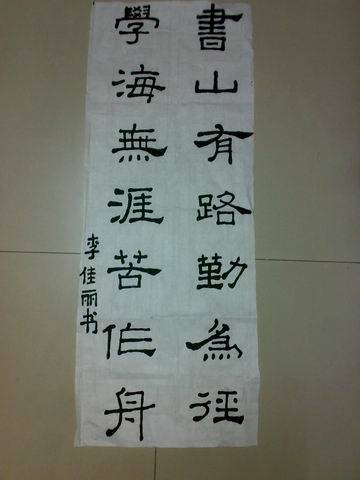 書山有路勤為徑
學海無涯苦作舟
李佳丽书